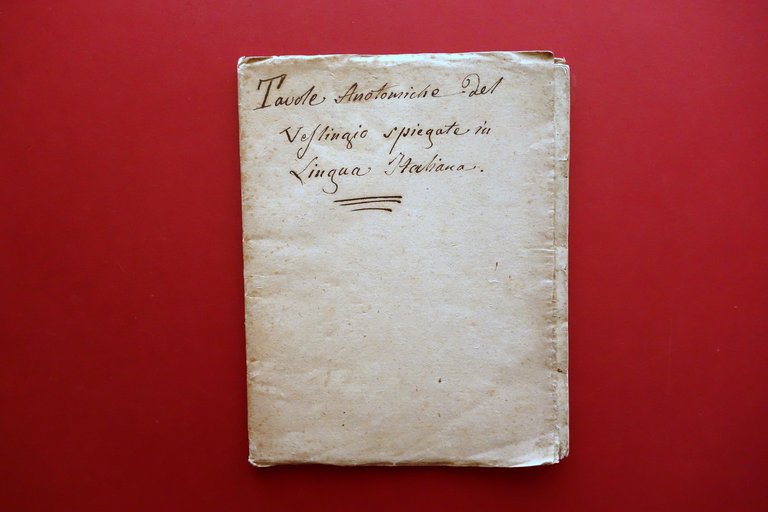 Tavole Anotomiche del
Veslingio spiegate in
Lingua Italiana.